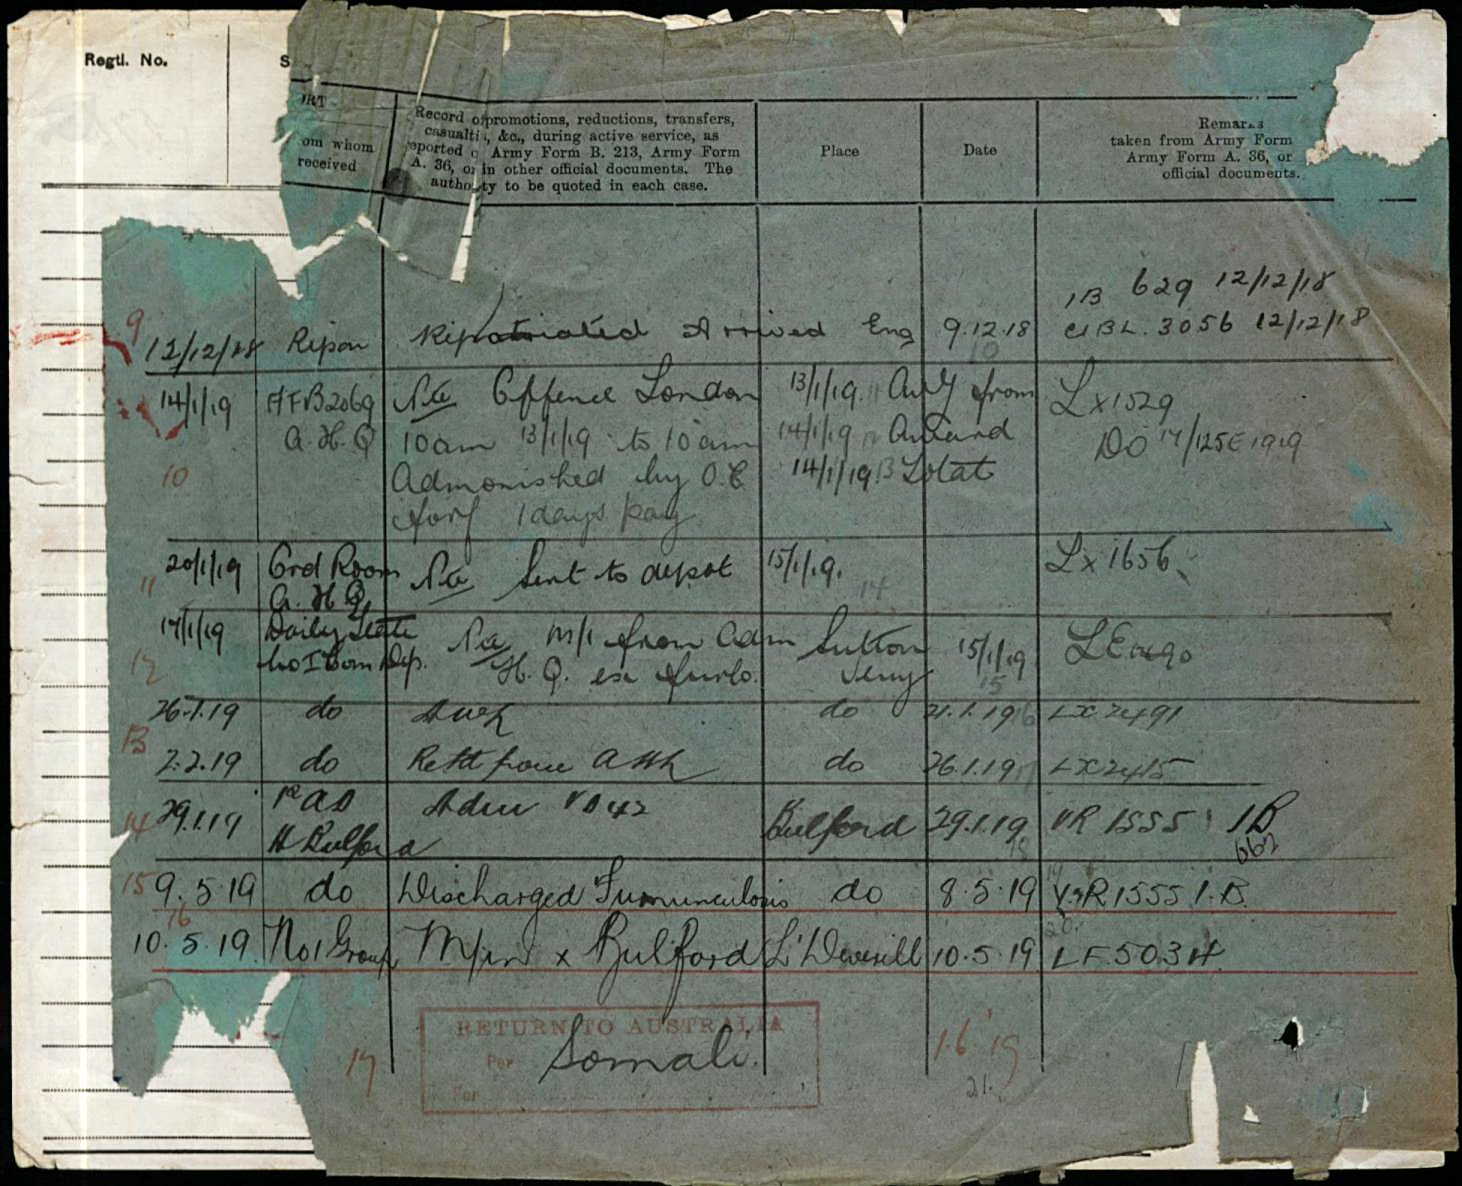 Regtl. No.
S
ORT
om whom
received
Record of promotions, reductions, transfers,
casualti , &c., during active service, as
eported o Army Form B. 213, Army Form
A. 36, or in other official documents. The
autho ty to be quoted in each case.
Place
Date
Remarks
taken from Army Form
Army Form A. 36, or
official documents.
1B 629 12/12/18
9
12/12/18 Ripon Repatriated Arrived Eng 9.12.18 BL. 3056 12/12/18
10
14/1/19 AFB2069 Offence London 13/1/19 from Lx1529
A.H.Q 10am 13/1/19 to 10am 14/1/19 Award DO 14/125E1919
10 Admonished by O.C 14/1/19 Total
forf 1 days pay
20/1/19 Ord Room Sent to depot 15/1/19. Lx 1656
11 A.H.Q 14
17/1/19 Daily State M/I from Adm Sutton 15/1/19
12 No 1 Com Dep. H.Q. ex furlo. Veny 15
26.1.19 do Awl do 21.1.19 16 LX 2491
13
2.2.19 do do 26.1.19 17 LX2415
14 29.1.19 1st AD Adm VD 42 Bulford 29.1.19 VR 1555 1B
H Bulford 18 662
15 9.5.19 do Discharged do 8.5.19 19 V.R.1555 1.B.
16 20.
10.5.19 No1 Group M/in x Bulford L'Deverill 10.5.19 LF.5034
RETURN TO AUSTRALIA
17 Per Somali. 1.6.19
For 21.